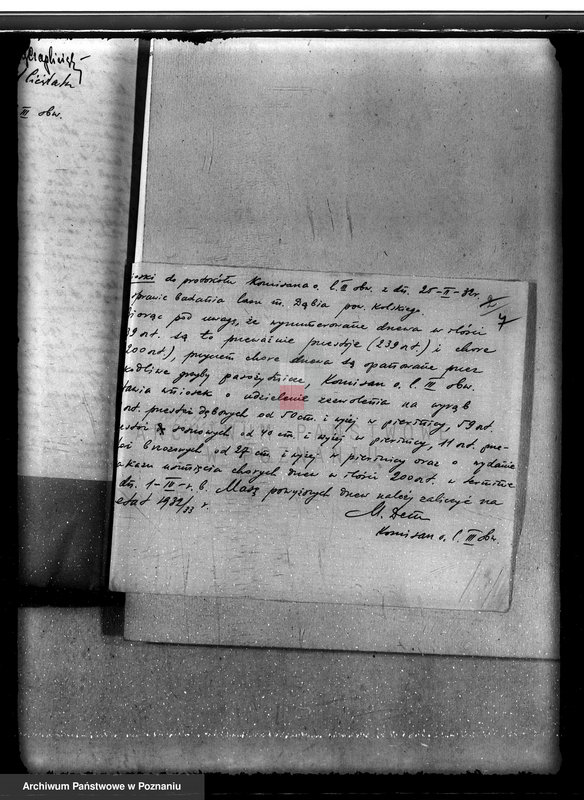 III obw.
ioski do protokółu Komisarza o. l. III obw. z dn. 25-II-32r.
sprawie badania lasu m. Dąbia pow. Kolskiego.
7
iorąc pod uwagę, że wynumerowane drzewa w ilości
39 szt. są to przeważnie przestoje (239 szt.) i chore
200 szt.), przyczem chore drzewa są opanowane przez
kodliwe grzyby pasożytnicze, Komisarz o. l. III obw.
tawia wniosek o udzielenie zezwolenia na wyrąb
szt. przestoi dębowych od 50 cm. i wyżej w pierśnicy, 59 szt.
estoi sosnowych od 40 cm. i wyżej w pierśnicy, 11 szt. prze-
toi brzozowych od 27 cm. i wyżej w pierśnicy oraz o wydanie
akazu usunięcia chorych drzew w ilości 200 szt. w terminie
dn. 1-IV-r. b. Masę powyższych drzew należy zaliczyć na
etat 1932/33 r.
Komisarz o. l. III obw.
Archiwum Państwowe w Poznaniu